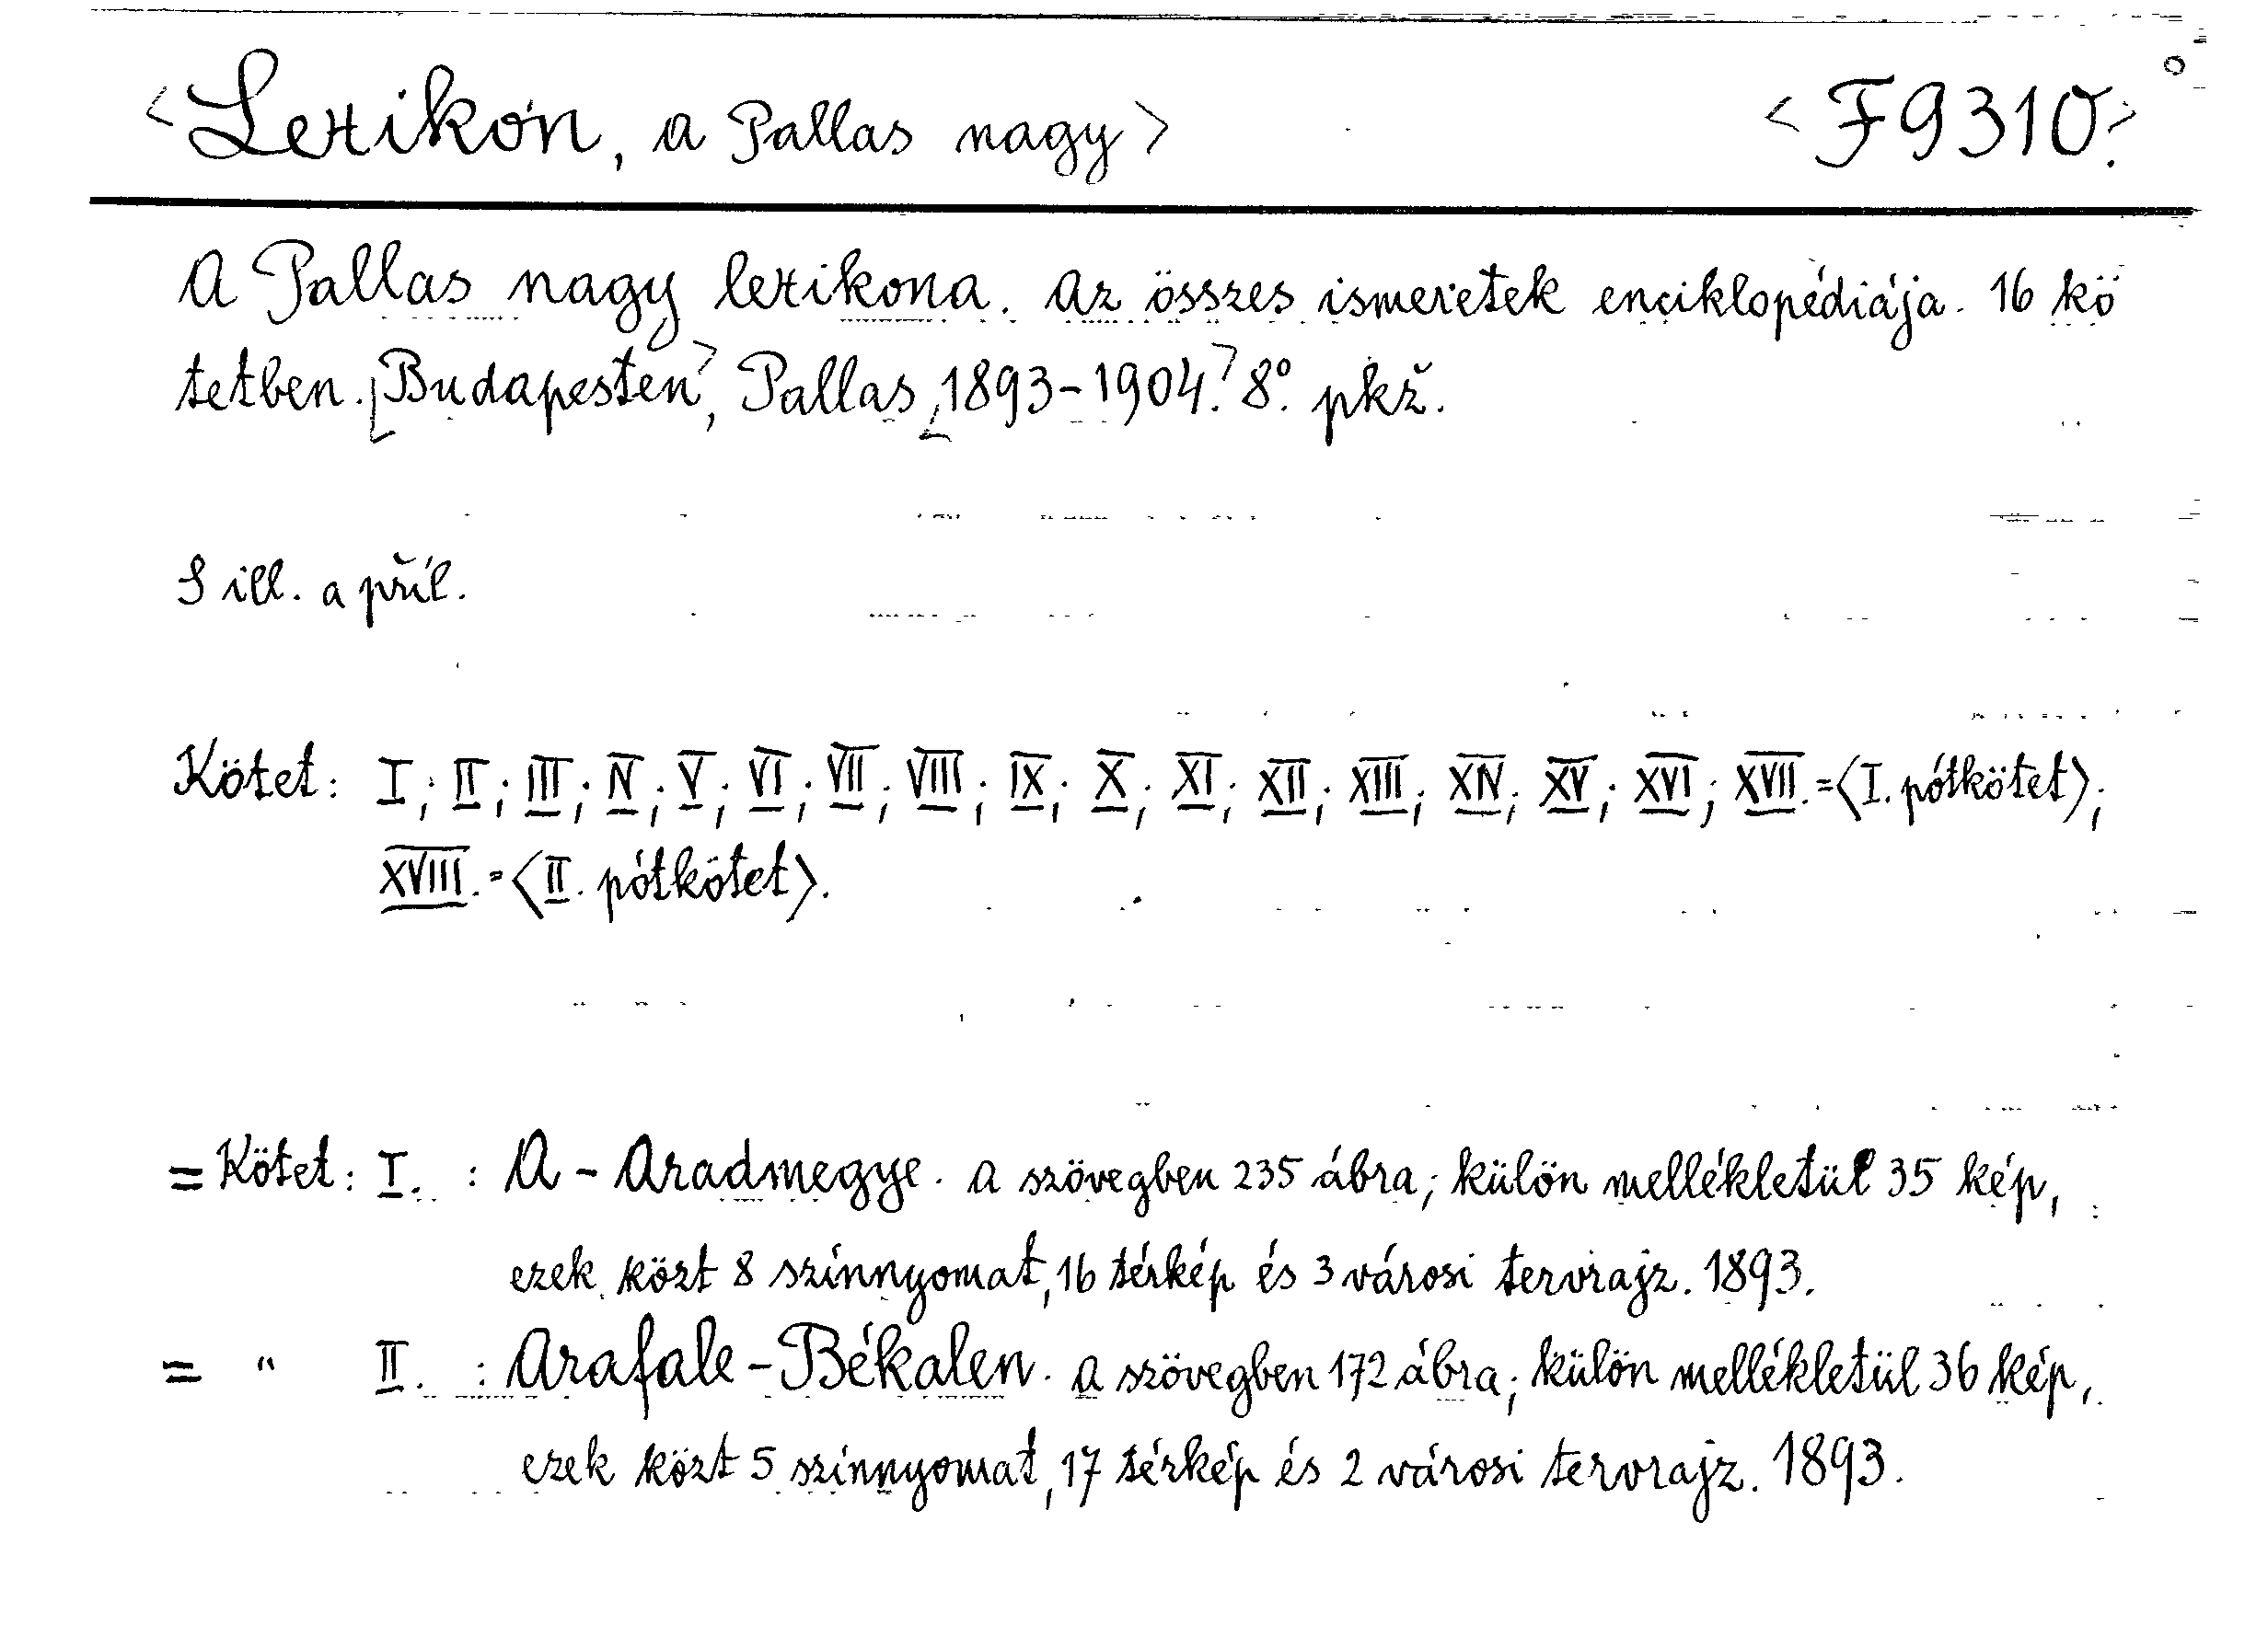 <Lexikon, a Pallas nagy> <F 9310.>
A Pallas nagy lexikona. Az összes ismeretek enciklopédiája. 16 kö
tetben. [Budapesten], Pallas [1893-1904.] 8°. pkž.
S ill. a příl.
Kötet: I; II; III; IV; V; VI; VII; VIII; IX; X; XI; XII; XIII; XIV; XV; XVI; XVII.=<I. pótkötet>;
XVIII.=<II. pótkötet>.
= Kötet: I. : A - Aradmegye. A szövegben 235 ábra; külön mellékletül 35 kép,
ezek közt 8 színnyomat, 16 térkép és 3 városi tervrajz. 1893.
= " II. : Arafale - Békalen. A szövegben 172 ábra; külön mellékletül 36 kép,
ezek közt 5 színnyomat, 17 térkép és 2 városi tervrajz. 1893.